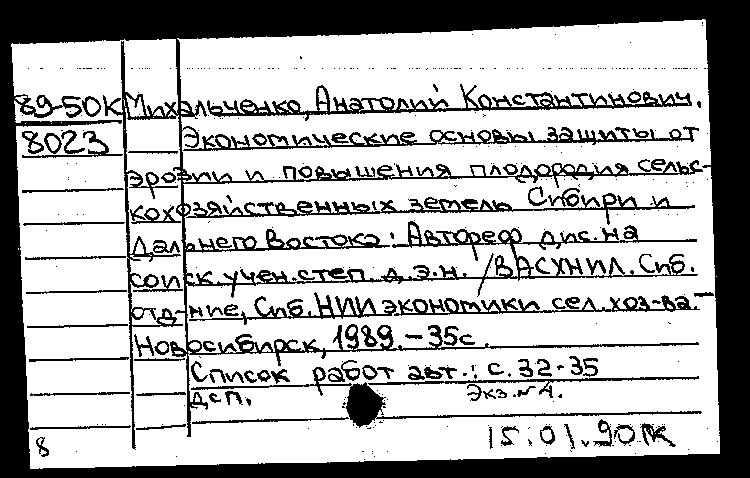 89-50К Михальченко, Анатолий Константинович.
8023 Экономические основы защиты от
эрозии и повышения плодородия сельс-
кохозяйственных земель Сибири и
Дальнего Востока: Автореф. дис. на
соиск. учен. степ. д.э.н. /ВАСХНИЛ. Сиб.
отд-ние, Сиб. НИИ экономики сел. хоз-ва.-
Новосибирск, 1989.-35с.
Список работ авт.: с.32-35
Дсп. Экз.№4.
8 15.01.90